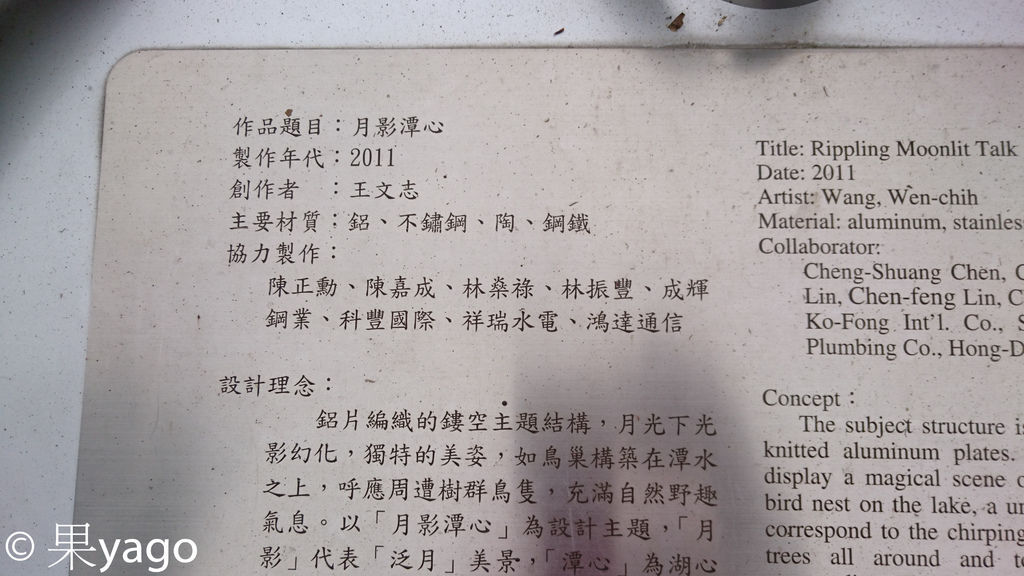 作品題目：月影潭心
製作年代：2011
創作者　：王文志
主要材質：鋁、不鏽鋼、陶、鋼鐵
協力製作：
陳正勳、陳嘉成、林燊祿、林振豐、成輝
鋼業、科豐國際、祥瑞水電、鴻達通信
設計理念：
鋁片編織的鏤空主題結構，月光下光
影幻化，獨特的美姿，如鳥巢構築在潭水
之上，呼應周遭樹群鳥隻，充滿自然野趣
氣息。以「月影潭心」為設計主題，「月
影」代表「泛月」美景，「潭心」為湖心
Title: Rippling Moonlit Talk
Date: 2011
Artist: Wang, Wen-chih
Material: aluminum, stainles
Collaborator:
Cheng-Shuang Chen, C
Lin, Chen-feng Lin, C
Ko-Fong Int'l. Co., S
Plumbing Co., Hong-D
Concept：
The subject structure is
knitted aluminum plates.
display a magical scene o
bird nest on the lake, a un
correspond to the chirping
trees all around and to
© 果yago